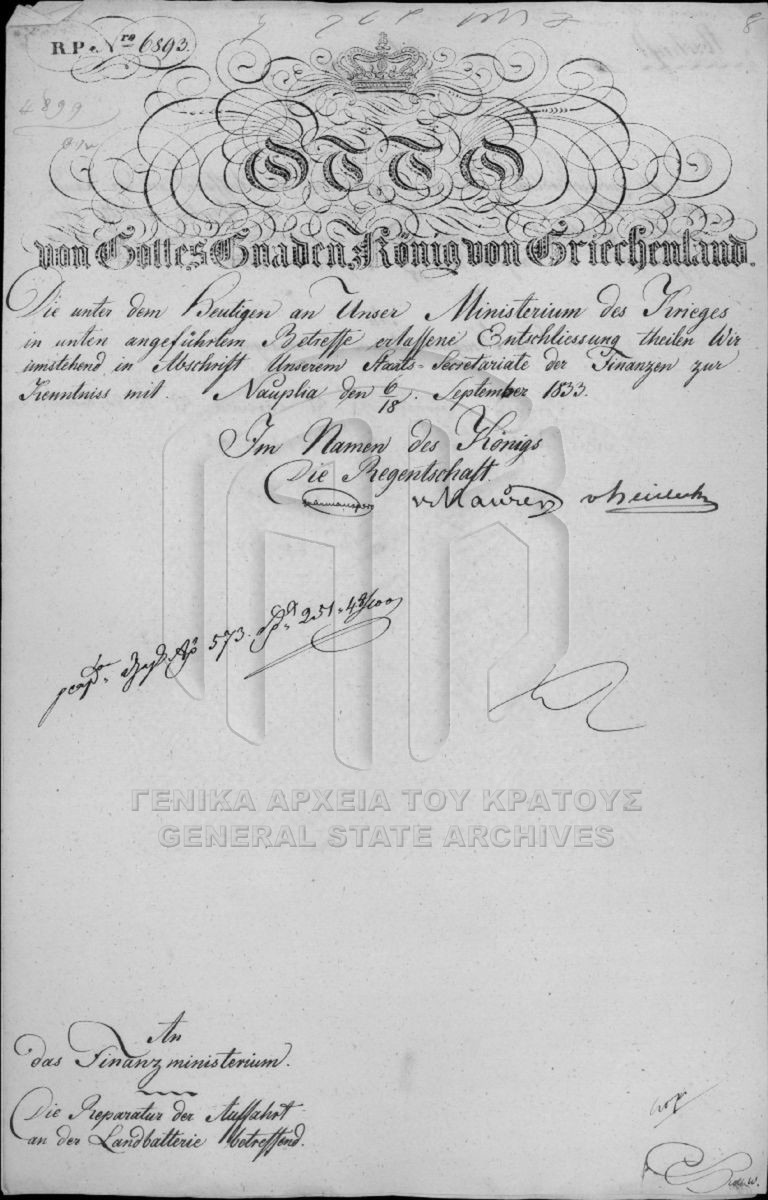 R.P. Nro 6893.
8
4899
OTTO
von Gottes Gnaden, König von Griechenland.
Die unter dem Heutigen an Unser Ministerium des Krieges
in unten angeführtem Betreffe erlassene Entschliessung theilen Wir
umstehend in Abschrift Unserem Staats-Secretariate der Finanzen zur
Kenntniss mit. Nauplia den 6/18. September 1833.
Im Namen des Königs
Die Regentschaft.
v Maurer v Heideck
573. 251.48/100
ΓΕΝΙΚΑ ΑΡΧΕΙΑ ΤΟΥ ΚΡΑΤΟΥΣ
GENERAL STATE ARCHIVES
An
das Finanzministerium.
Die Reparatur der Auffahrt
an der Landbatterie betreffend.